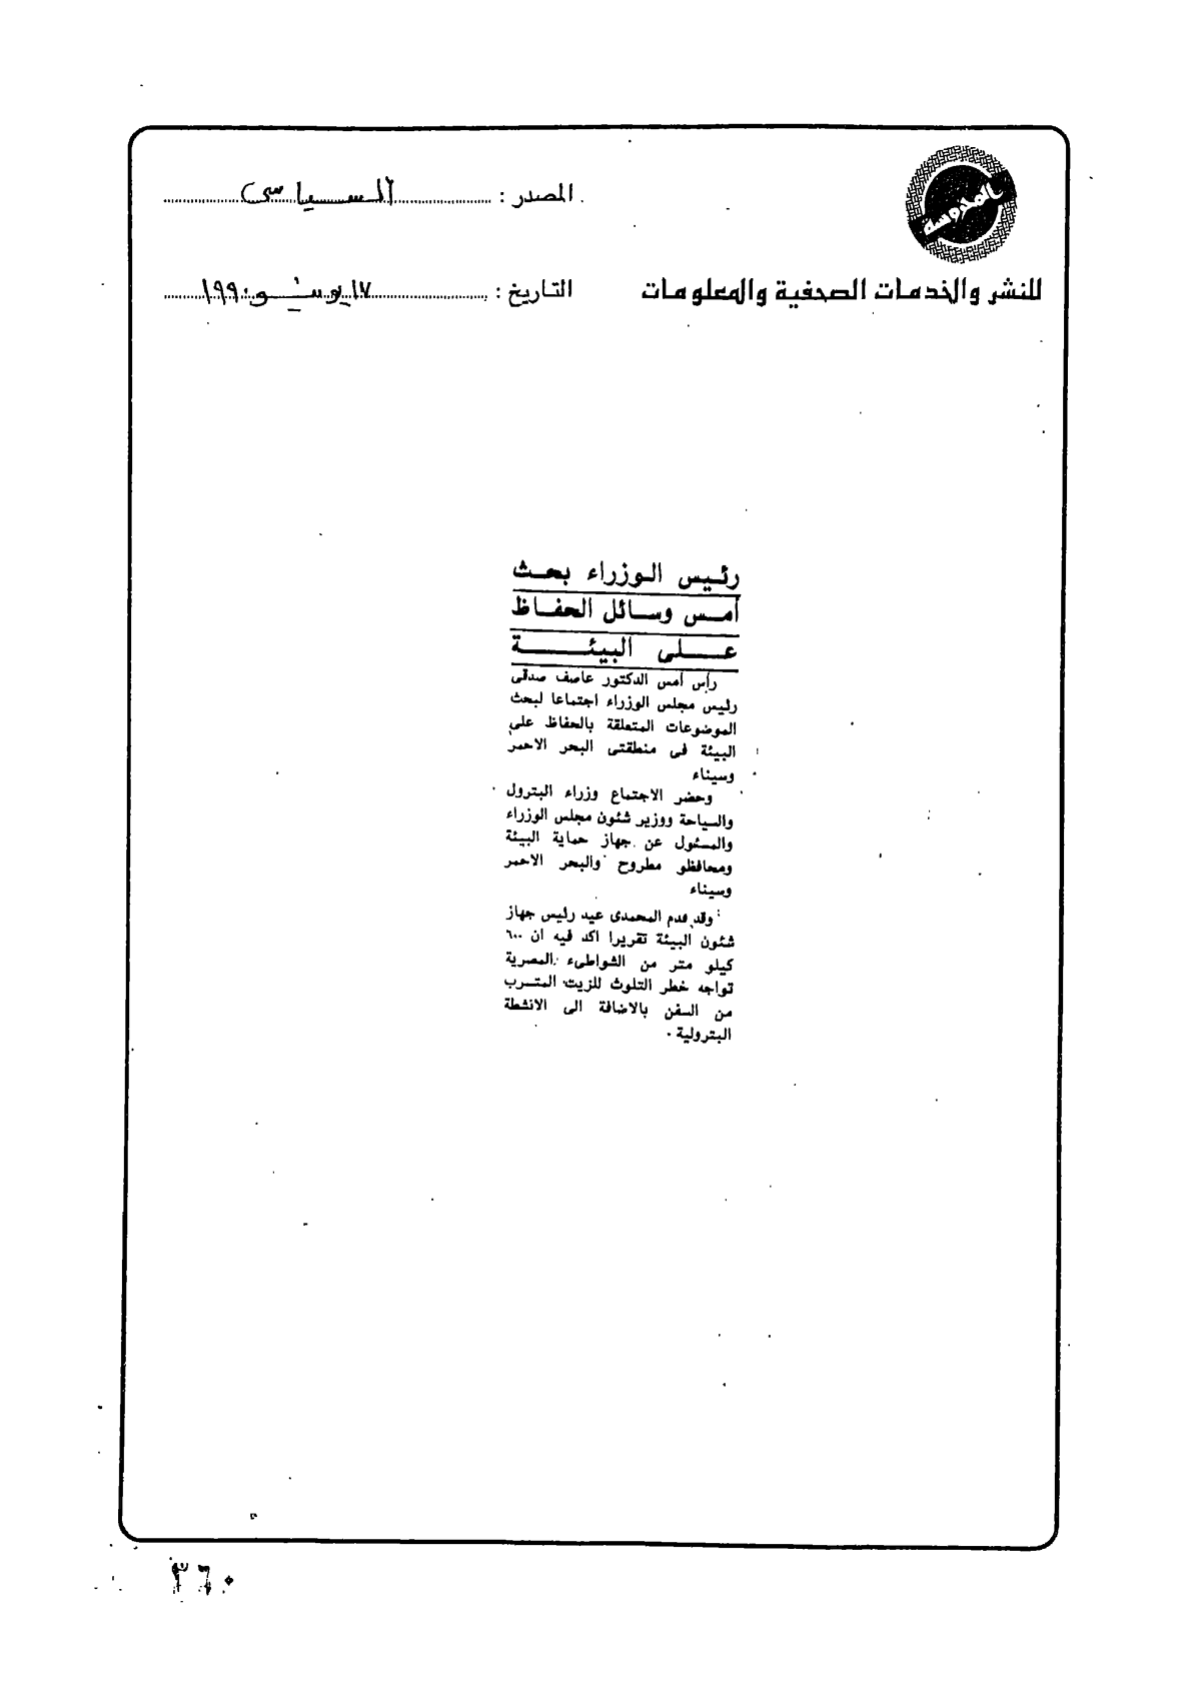 المصدر : السياسى
للنشر والخدمات الصحفية والمعلومات
التاريخ : ١٧ يونيو ١٩٩٠
رئيس الوزراء بحث
أمس وسائل الحفاظ
على البيئة
رأس أمس الدكتور عاصف صدقى
رئيس مجلس الوزراء اجتماعا لبحث
الموضوعات المتعلقة بالحفاظ على
البيئة فى منطقتى البحر الاحمر
وسيناء
وحضر الاجتماع وزراء البترول
والسياحة ووزير شئون مجلس الوزراء
والمسئول عن جهاز حماية البيئة
ومحافظو مطروح والبحر الاحمر
وسيناء
وقد قدم المحمدى عيد رئيس جهاز
شئون البيئة تقريرا اكد فيه ان ٦٠٠
كيلو متر من الشواطىء المصرية
تواجه خطر التلوث للزيت المتسرب
من السفن بالاضافة الى الانشطة
البترولية .
٣٦٠